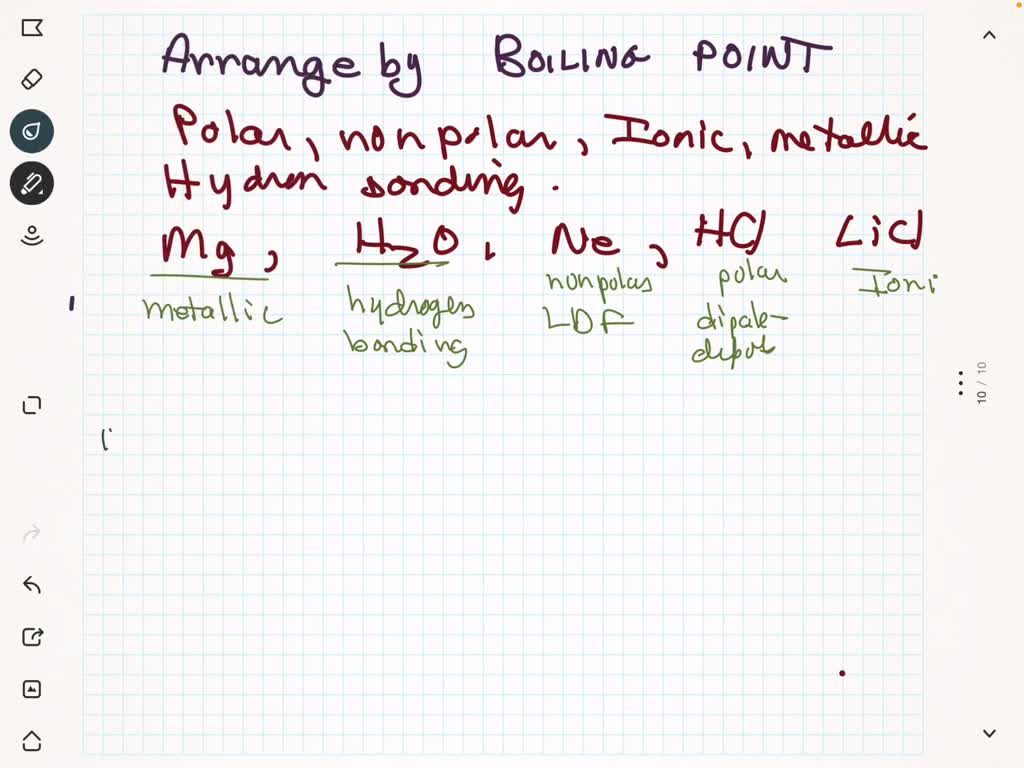 Arrange by BOILING POINT
Polar, nonpolar, Ionic, metallic
Hydron bonding.
Mg, H2O, Ne, HCl LiCl
metallic hydrogen bonding nonpolar LDF polar dipole- Ioni
10 / 10